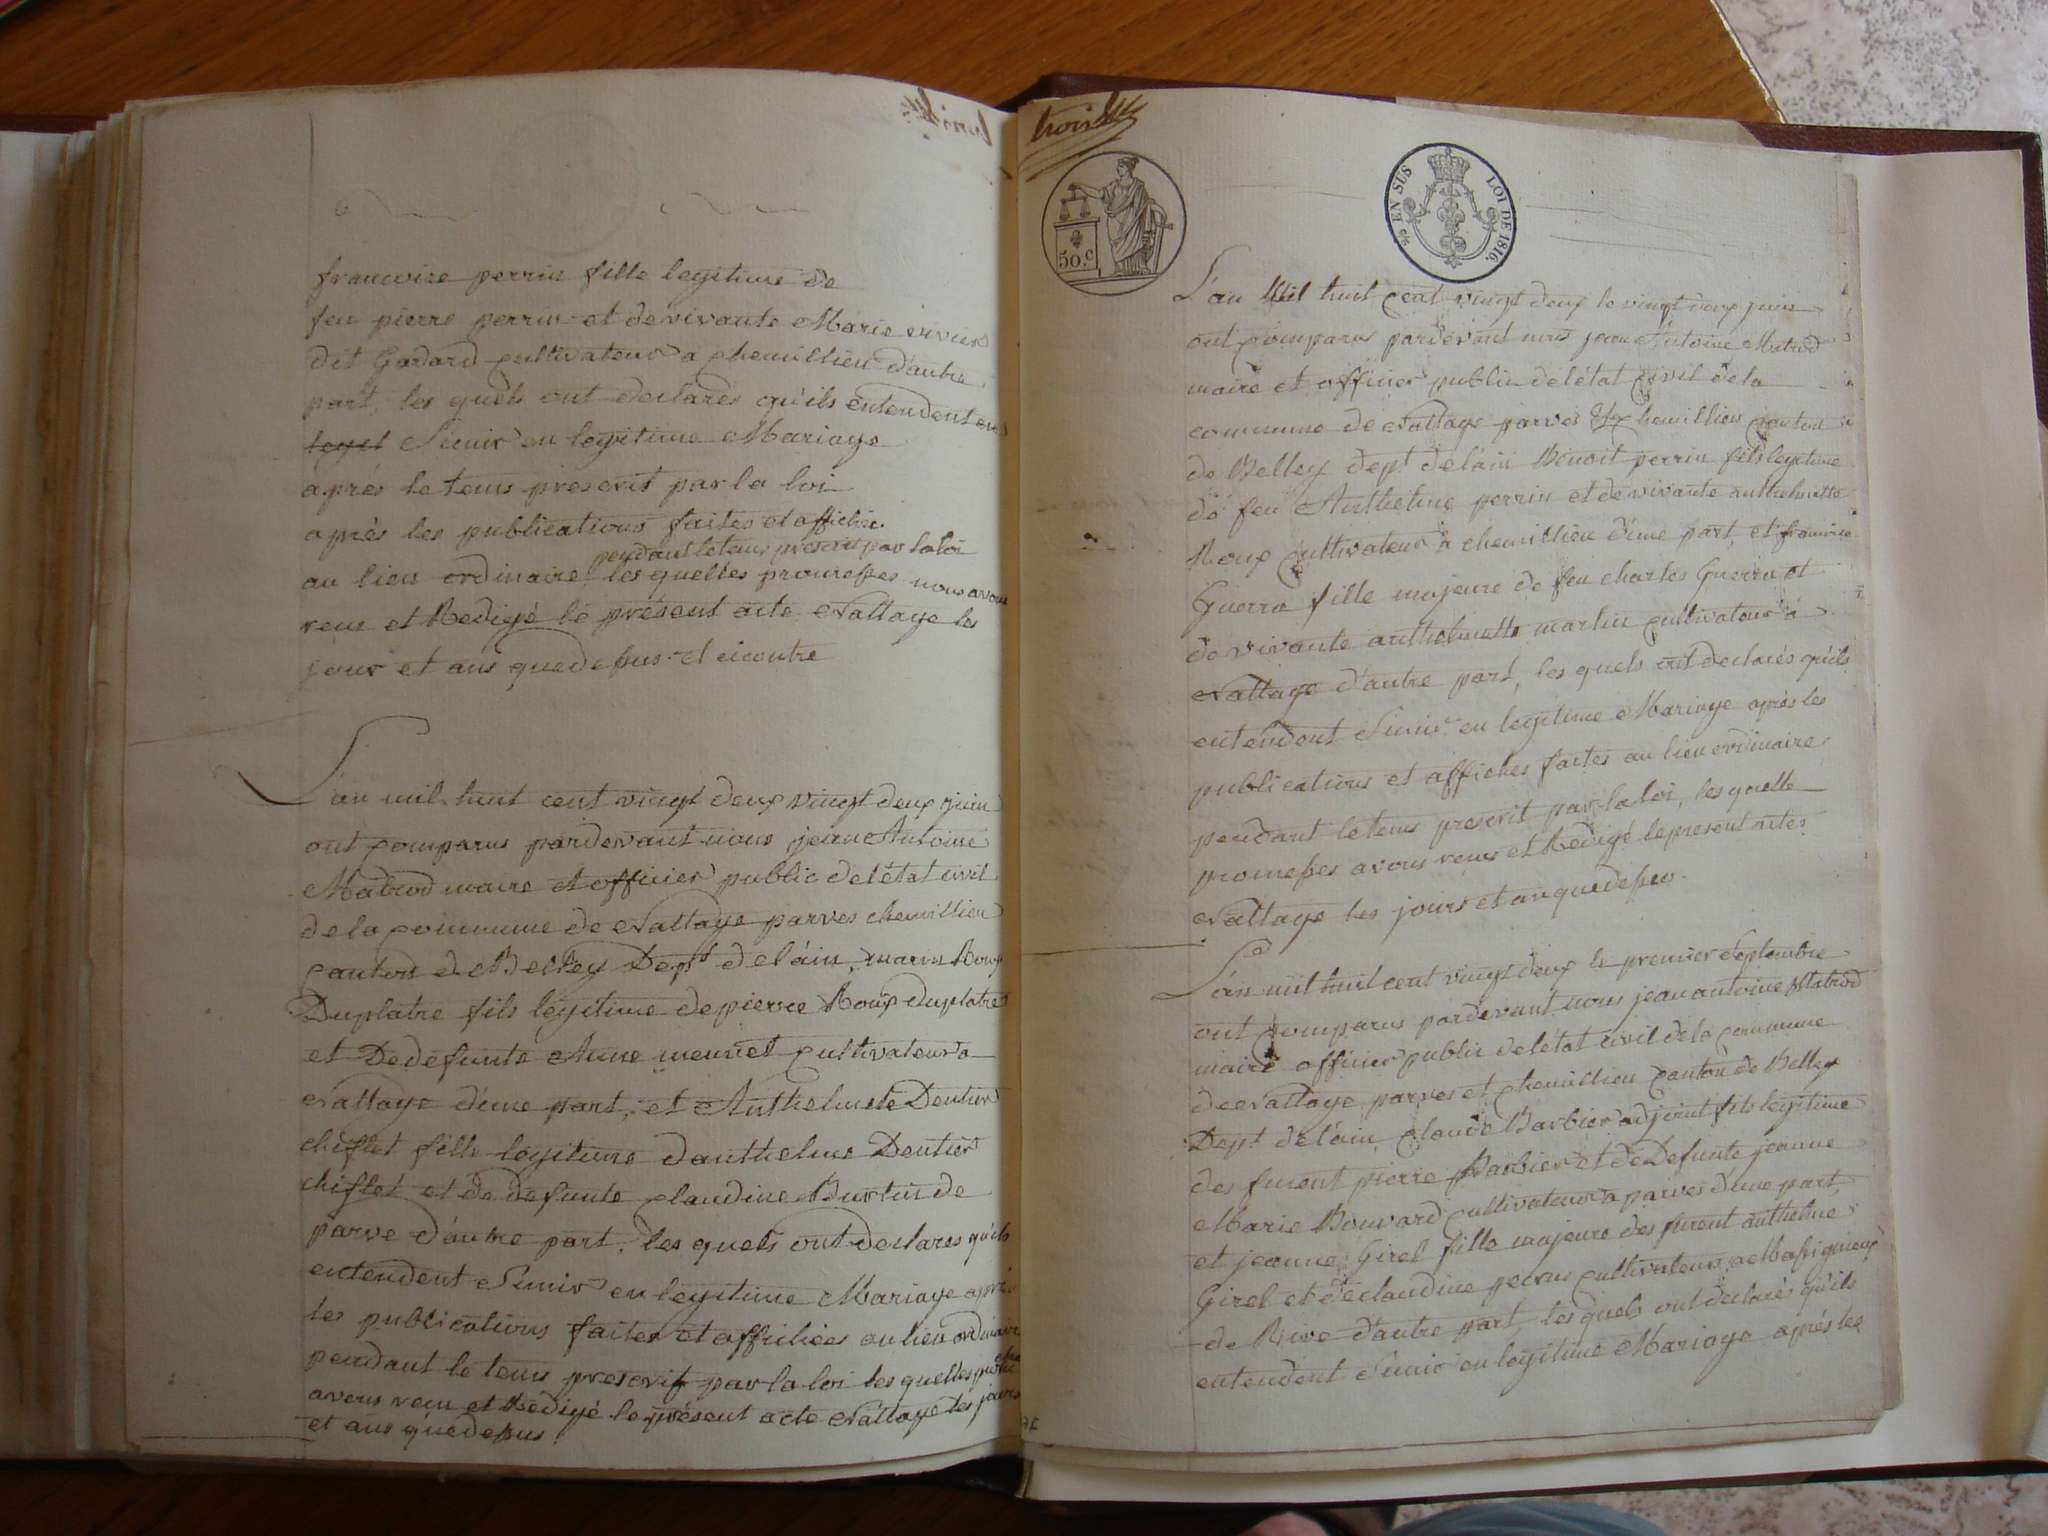 françoise perrin fille legitime de
feu pierre perrin et de vivante Marie
dit Godard cultivateur a chemillieu d'autre
part, les quels ont declarés qu'ils entendent en
S'unir en legitime Mariage
aprés le tems prescrit par la loi
aprés les publications faites et affichée
pendant le tems prescrit par la loi
au lieu ordinaire les quelles promesses nous avons
recu et Redigé le présent acte a Nattage les
jour et ans que dessus et
L'an mil huit cent vingt deux vingt deux juin
ont comparus pardevant nous jean Antoine
Matrod maire et officier public de l'état civil
de la commune de Nattage parves chemillieu
canton de Belley Dept de l'ain, marin Roux
Duplatre fils légitime de pierre Roux duplatre
et De defunte Anne meuriet cultivateur a
Nattage d'une part, et Anthelmete Dentier
chiflet fille legitime d'anthelme Dentier
chiflet et de defunte claudine Burtin de
parve d'autre part, les quels ont declarés qu'ils
entendent S'unir en legitime Mariage aprés
les publications faites et affichées au lieu ordinaire
pendant le tems prescrit par la loi les quelles
avons recu et Redigé le présent acte a Nattage les jours
et ans que dessus
trois
50.c
EN SUS LOI DE 1816.
L'an Mil huit cent vingt deux le vingt deux juin
ont comparus pardevant nous jean Antoine Matrod
maire et officier public de l'état civil de la
commune de Nattage parves chemillieu canton
de Belley dept de l'ain Benoit perrin fils legitime
de feu Anthelme perrin et de vivante anthelmette
Roux cultivateur a chemillieu d'une part, et françoise
Guerra fille majeure de feu charles Guerra et
de vivante anthelmette martin cultivateur a
Nattage d'autre part, les quels ont declarés qu'ils
entendent S'unir en legitime Mariage aprés les
publications et affiches faites au lieu ordinaire
pendant le tems prescrit par la loi, les quelle
promesses avons recu et Redigé le present acte
a Nattage les jours et an que dessus.
L'an mil huit cent vingt deux le premier Septembre
ont comparus pardevant nous jean antoine Matrod
maire officier public de l'état civil de la commune
de Nattage parves et chemillieu canton de Belley
Dept de l'ain, claude Barbier adjoint fils legitime
des furent pierre Barbier et de Defunte jeanne
Marie Bouvard cultivateur a parves d'une part,
et jeanne Girel fille majeure des furent anthelme
Girel et de claudine pecrus cultivateurs a Massignieux
de Rive d'autre part, les quels ont declarés qu'ils
entendent S'unir en legitime Mariage aprés les